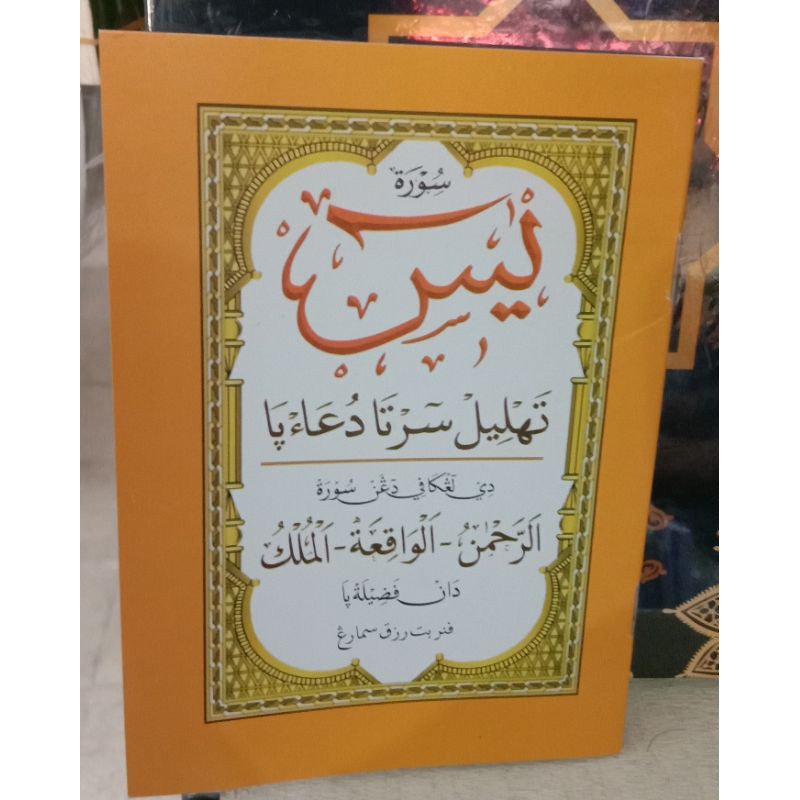 سُوْرَةُ
يٰسٓ
تَهْلِيْل سَرْتَا دُعَاءپَا
دِيْ لَڠْكَافِي دَڠَنْ سُوْرَةْ
اَلرَّحْمٰنُ - اَلْوَاقِعَةُ - اَلْمُلْكُ
دَانْ فَضِيْلَةْپَا
فنربت رزق سمارڠ